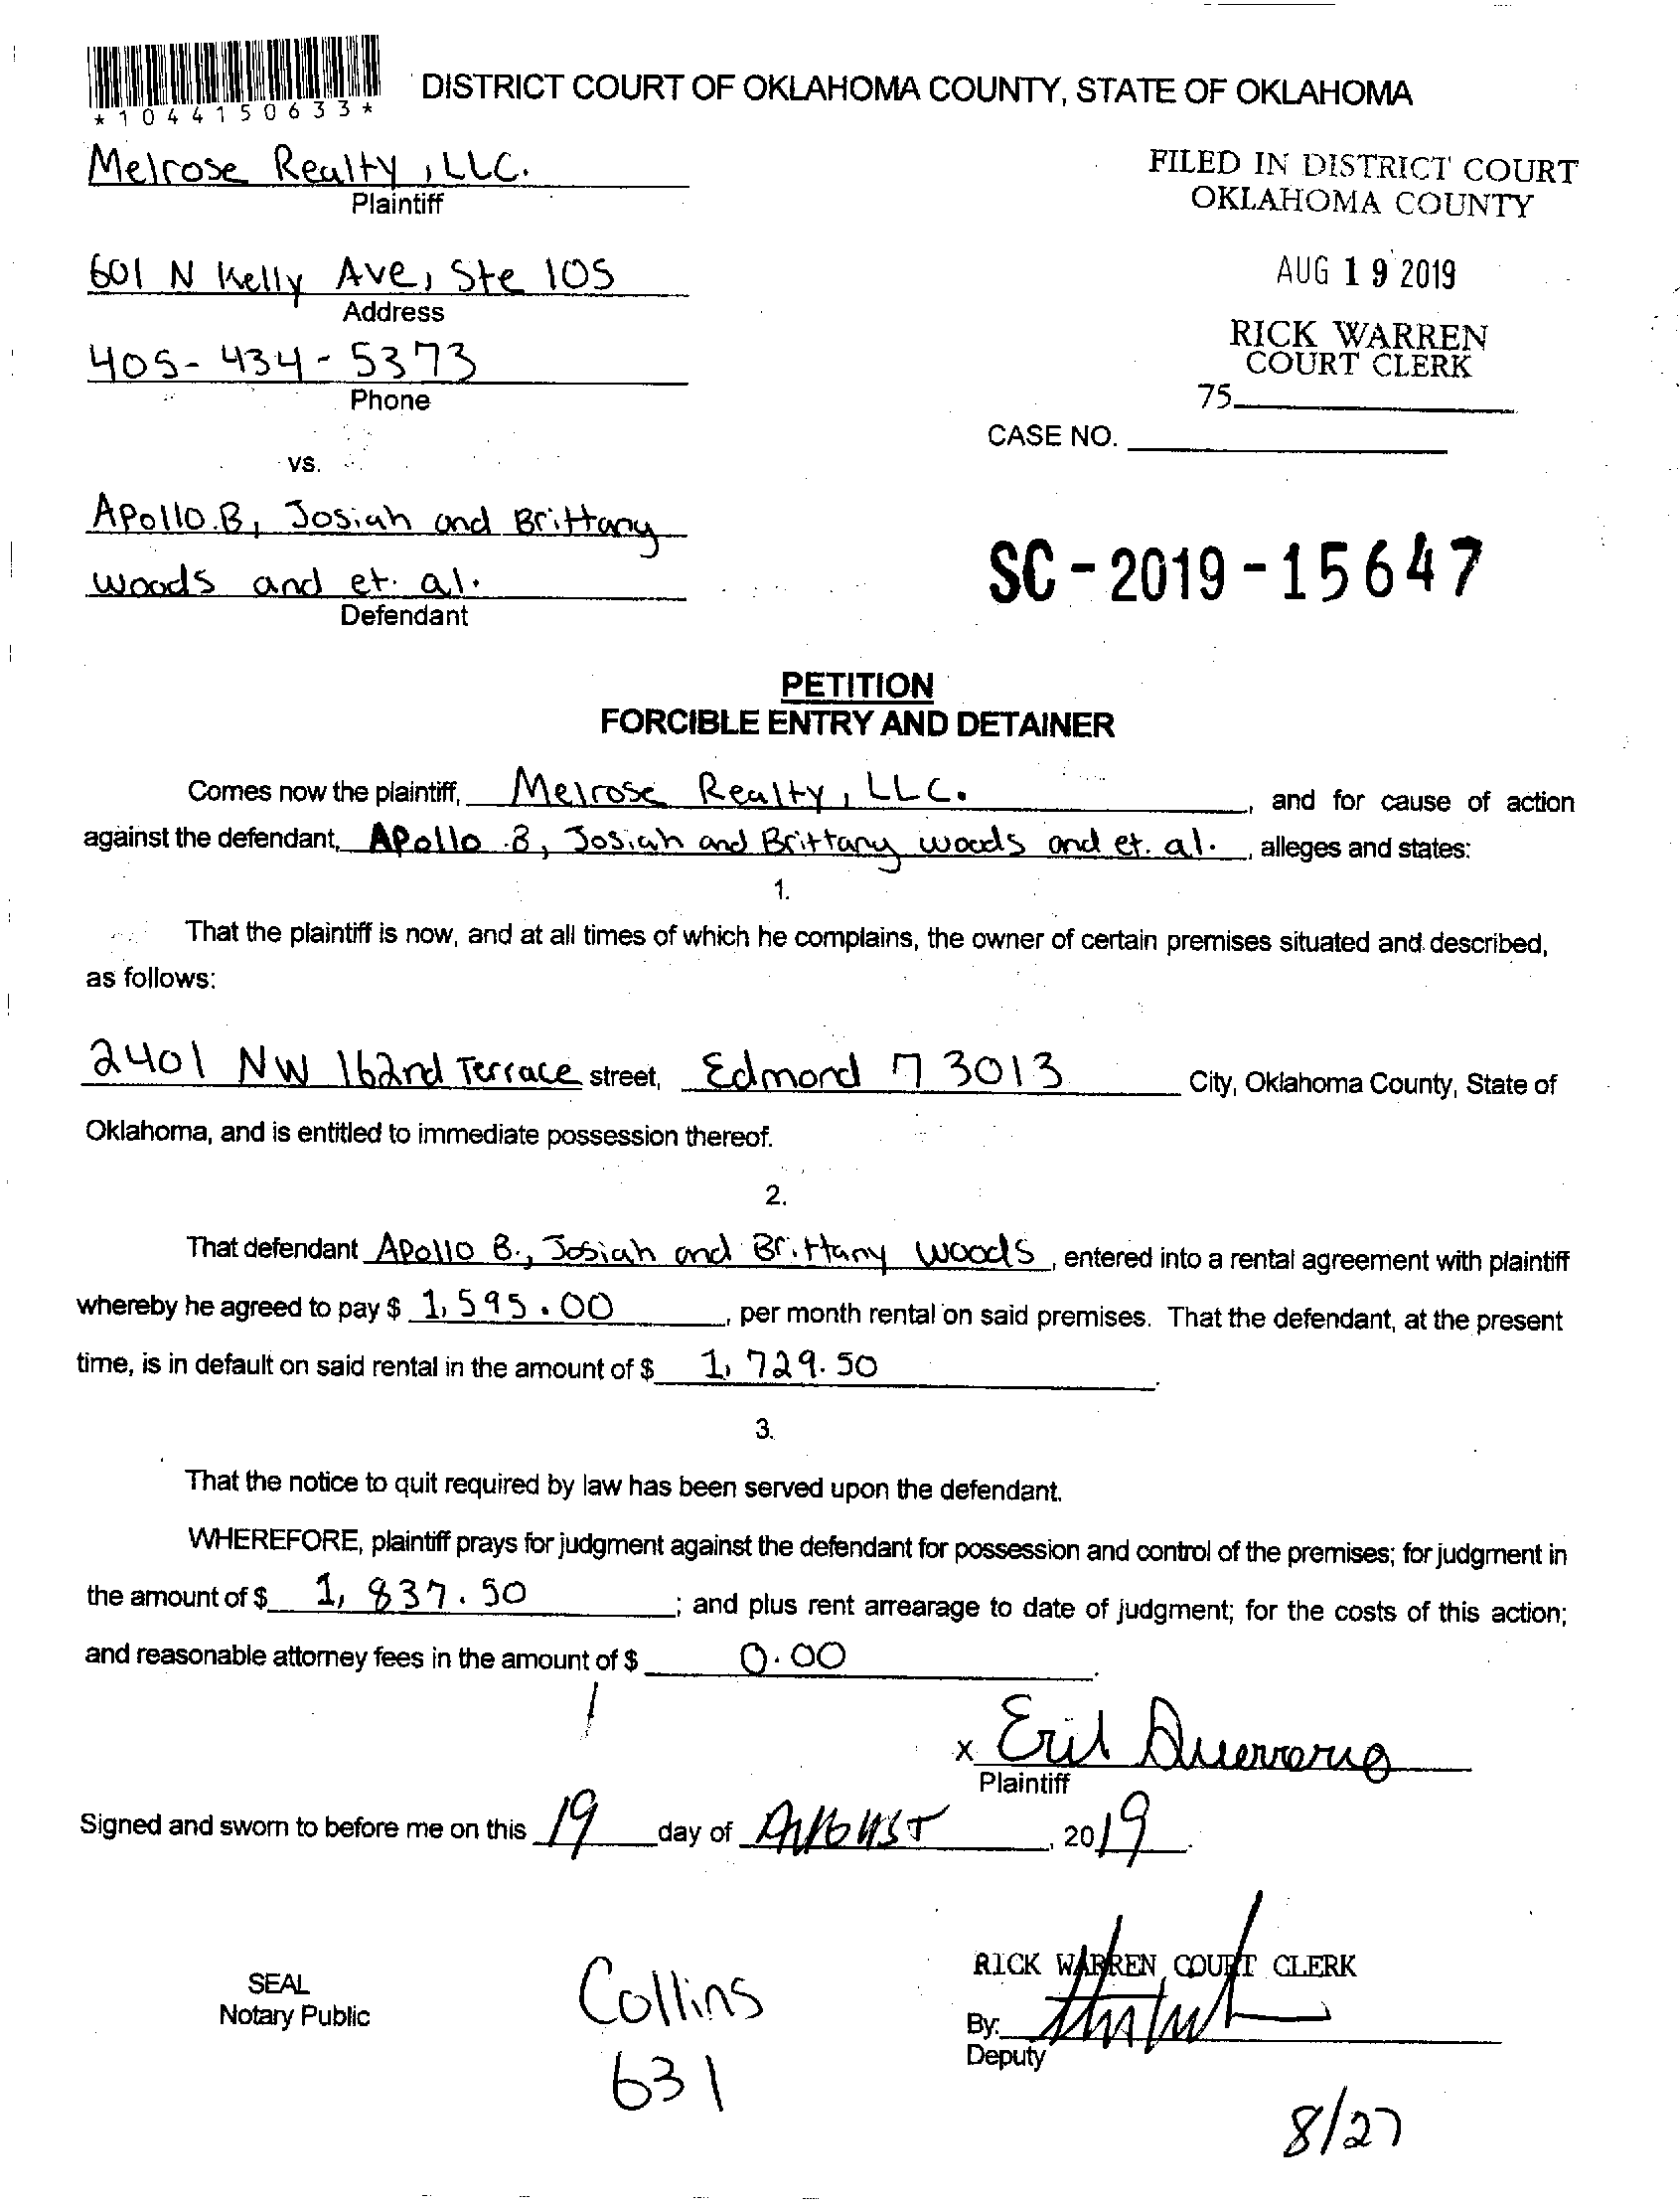 *1044150633*
DISTRICT COURT OF OKLAHOMA COUNTY, STATE OF OKLAHOMA
Melrose Realty, LLC.
Plaintiff
FILED IN DISTRICT COURT
OKLAHOMA COUNTY
601 N Kelly Ave, Ste 105
Address
AUG 19 2019
405-434-5373
Phone
RICK WARREN
COURT CLERK
75
CASE NO.
vs.
Apollo.B, Josiah and Brittany
woods and et. al.
Defendant
SC-2019-15647
PETITION
FORCIBLE ENTRY AND DETAINER
Comes now the plaintiff, Melrose Realty, LLC. , and for cause of action
against the defendant, Apollo .B, Josiah and Brittany woods and et. al. , alleges and states:
1.
That the plaintiff is now, and at all times of which he complains, the owner of certain premises situated and described,
as follows:
2401 NW 162nd Terrace street, Edmond 73013 City, Oklahoma County, State of
Oklahoma, and is entitled to immediate possession thereof.
2.
That defendant Apollo B., Josiah and Brittany woods , entered into a rental agreement with plaintiff
whereby he agreed to pay $ 1,595.00 , per month rental on said premises. That the defendant, at the present
time, is in default on said rental in the amount of $ 1,729.50 .
3.
That the notice to quit required by law has been served upon the defendant.
WHEREFORE, plaintiff prays for judgment against the defendant for possession and control of the premises; for judgment in
the amount of $ 1,837.50 ; and plus rent arrearage to date of judgment; for the costs of this action;
and reasonable attorney fees in the amount of $ 0.00 .
x
Plaintiff
Signed and sworn to before me on this 19 day of August , 2019.
SEAL
Notary Public
Collins
631
RICK WARREN COURT CLERK
By:
Deputy
8/27